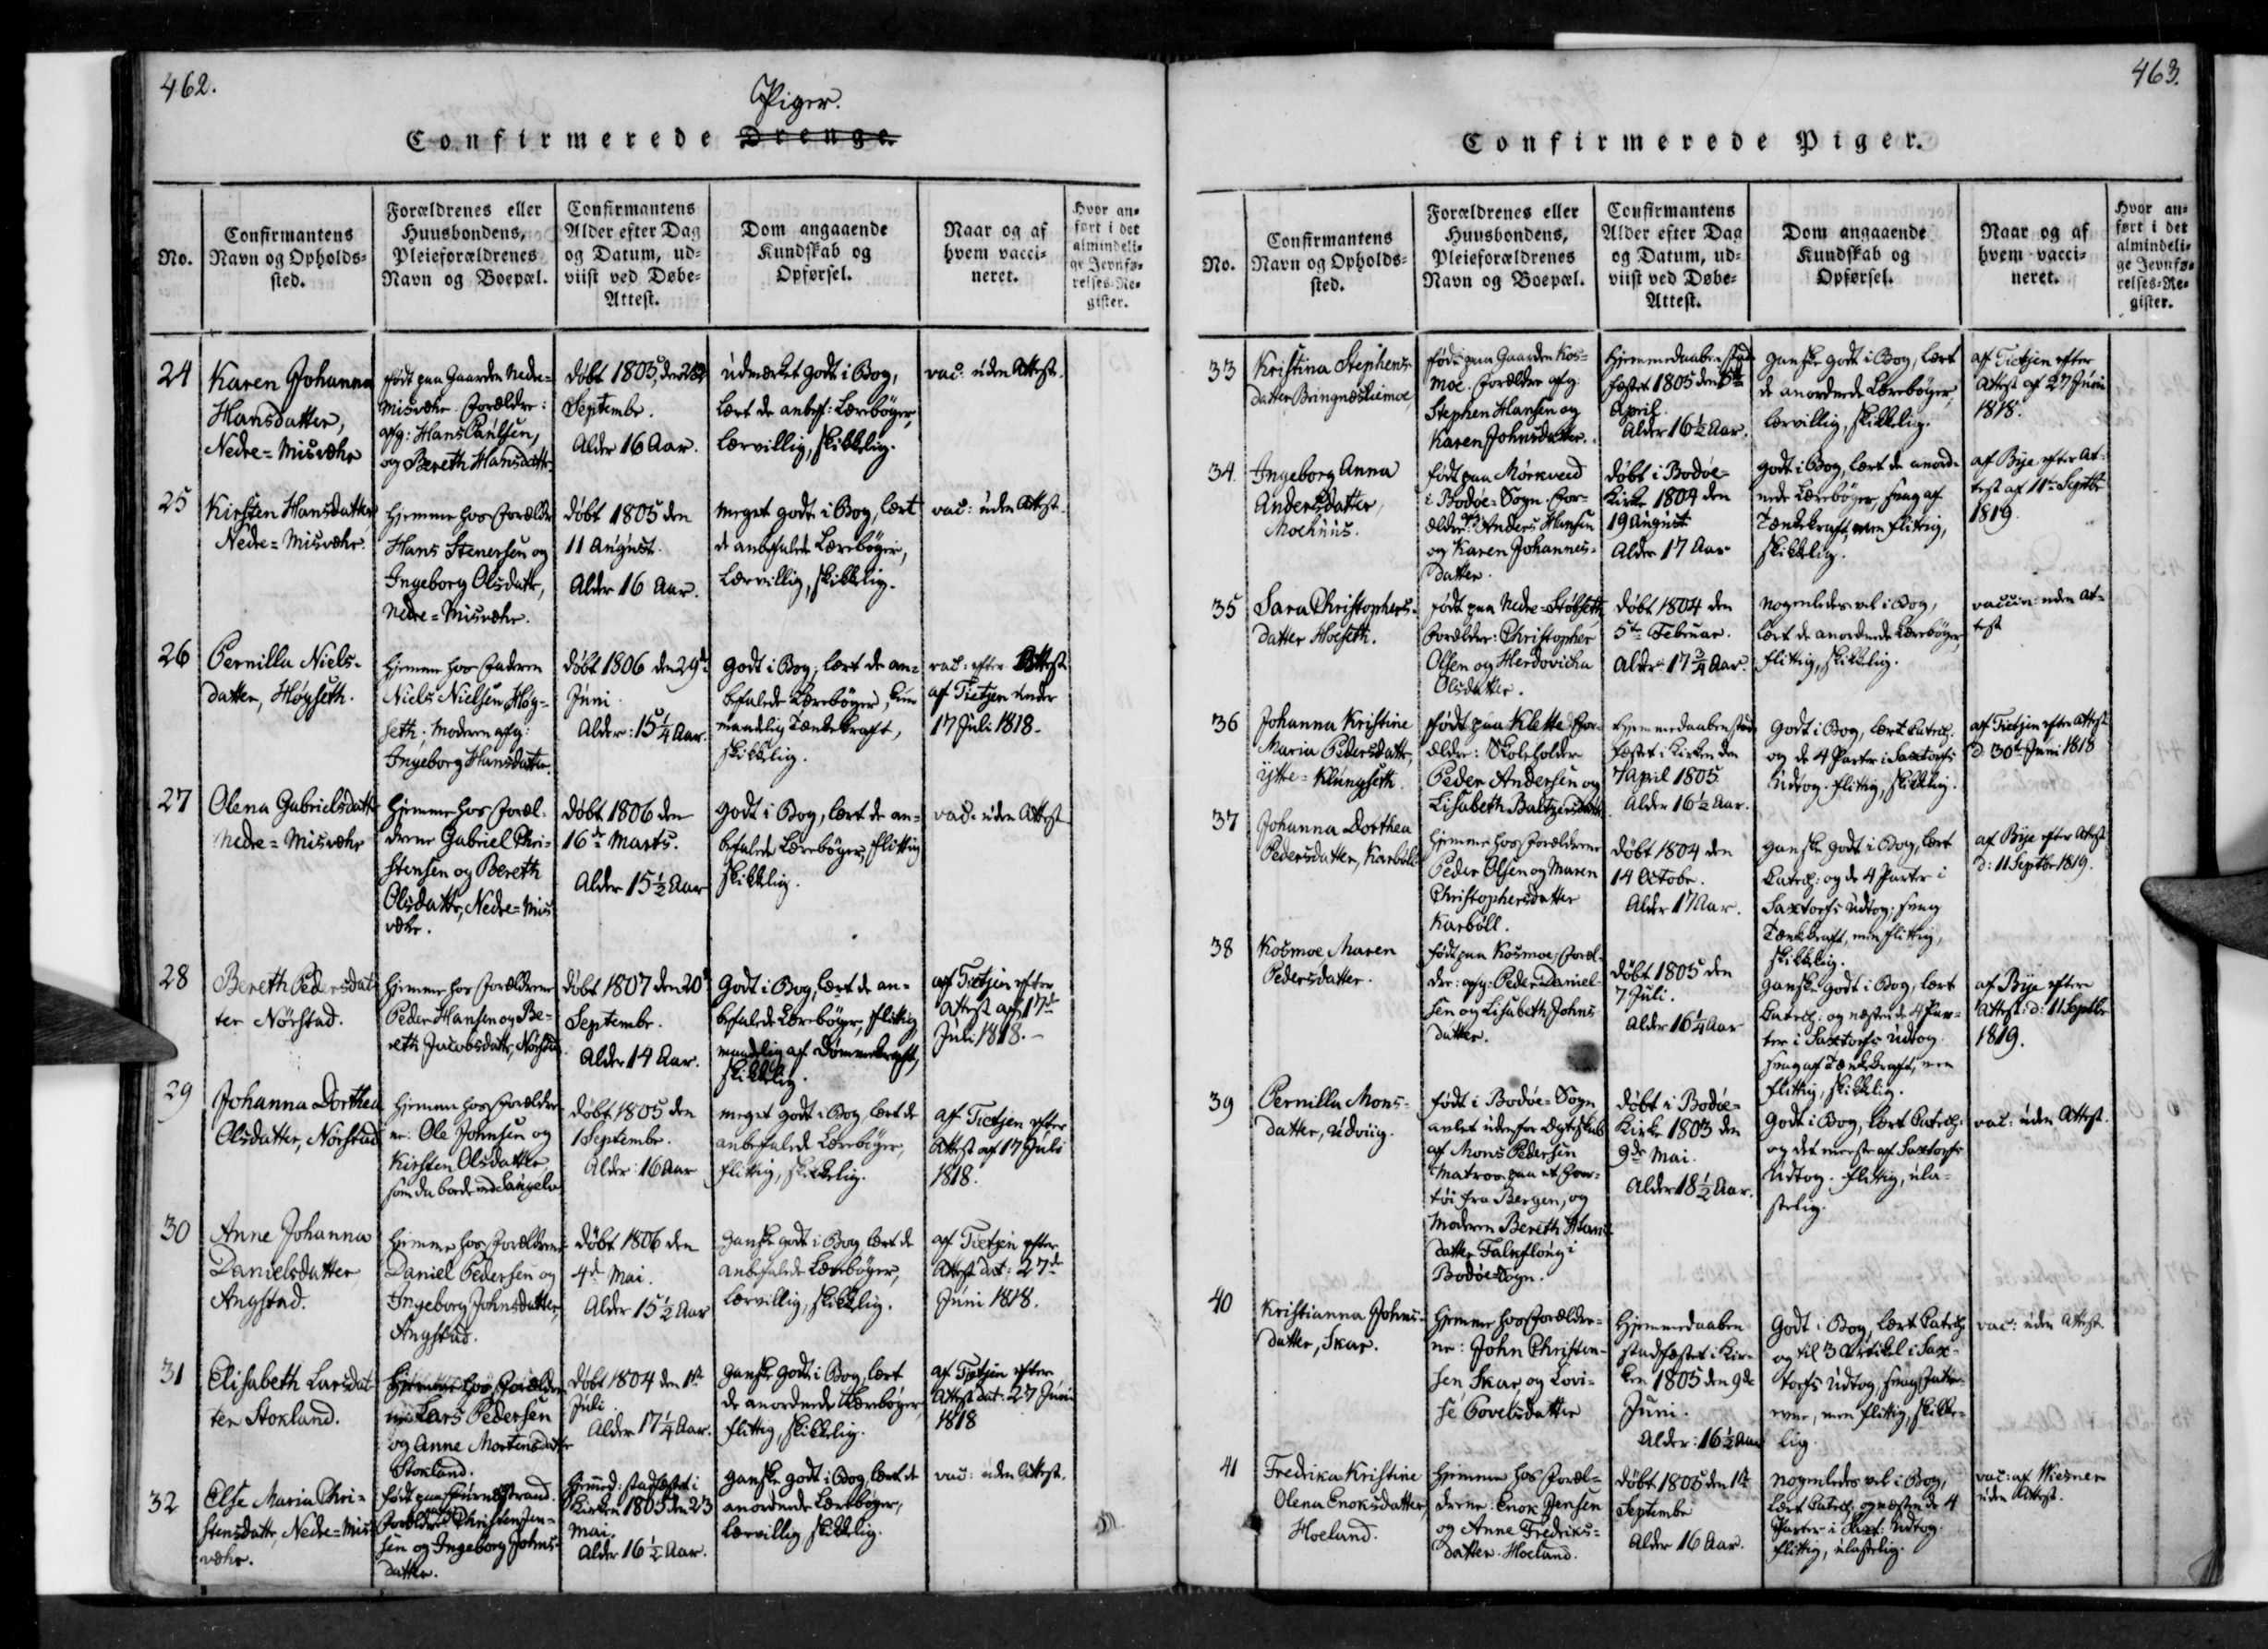 462.
Piger.
Confirmerede Drenge.
No.
Confirmantens
Navn og Opholds-
sted.
Forældrenes eller
Huusbondens,
Pleieforældrenes
Navn og Boepæl.
Confirmantens
Alder efter Dag
og Datum, ud-
viist ved Døbe-
Attest.
Dom angaaende
Kundskab og
Opførsel.
Naar og af
hvem vacci-
neret.
Hvor an-
ført i det
almindeli-
ge Jevnfø-
relses-Re-
gister.
24
Karen Johanna
Hansdatter,
Nedre=Misvær
født paa Gaarden Nedre-
Misvær. Forældre:
afg: Hans Paulsen,
og Bereth Hansdattr
døbt 1805, den 22
Septembr.
Alder 16 Aar.
udmærket godt i Bog,
lært de anbef: Lærebøger,
lærvillig, skikkelig.
vac: uden Attest.
25
Kirsten Hansdatter,
Nedre=Misvær.
hjemme hos Forældr
Hans Stenersen og
Ingeborg Olsdattr,
Nedre=Misvær.
døbt 1805 den
11 August.
Alder 16 Aar.
meget godt i Bog, lært
de anbefalede Lærebøger,
Lærvillig, skikkelig.
vac: uden Attest.
26
Pernilla Niels-
datter, Høgseth.
hjemme hos Faderen
Niels Nielsen Høg-
seth; Moderen afg:
Ingeborg Hansdatter.
døbt 1806 den 29de
Juni.
Alder: 15 1/4 Aar.
godt i Bog, lært de an-
befalede Lærebøger, kun
maadelig Tænkekraft,
skikkelig.
vac: efter Attest
af Tietjen under
17 Juli 1818.
27
Olena Gabrielsdattr
Nedre=Misvær
hjemme hos Foræl-
drene Gabriel Chri-
stensen og Bereth
Olsdattr, Nedre=Mis
vær.
døbt 1806 den
16de Marts.
Alder 15 1/2 Aar
godt i Bog, lært de an-
befalede Lærebøger, flittig
skikkelig.
vac: uden Attest
28
Bereth Pedersdat-
ter Nørstad.
hjemme hos Forældrene
Peder Hansen og Be-
reth Jacobsdattr, Nørstad
døbt 1807 den 20de
Septembr.
Alder 14 Aar.
Godt i Bog, lært de an-
befalede Lærebøger, flittig
maadelig af Dømmekraft,
skikkelig.
af Tietjen efter
Attest af 17de
Juli 1818.
29
Johanna Dorthea
Olsdatter, Nørstad
hjemme hos Forældre
ne: Ole Johnsen og
Kirsten Olsdatter
døbt 1805 den
1 Septembr.
Alder: 16 Aar
meget godt i Bog, lært de
anbefalede Lærebøger,
flittig, skikkelig.
af Tietjen efter
Attest af 17 Juli
1818.
30
Anne Johanna
Danielsdatter,
Angstad.
hjemme hos Forældrene
Daniel Pedersen og
Ingeborg Johnsdatter,
Angstad.
døbt 1806 den
4de Mai.
Alder 15 1/2 Aar
ganske godt i Bog, lært de
anbefalede Lærebøger,
lærvillig, skikkelig.
af Tietjen efter
Attest dat: 27de
Juni 1818.
31
Elisabeth Larsdat-
ter Stokland.
hjemme hos Forældre
ne Lars Pedersen
og Anne Mortensdatter
Stokland.
døbt 1804 den 1ste
Juli.
Alder 17 1/4 Aar.
ganske godt i Bog, lært
de anordnede Lærebøger,
flittig, skikkelig.
af Tietjen efter
Attest dat: 27 Juni
1818
32
Else Maria Chri-
stensdattr, Nedre=Mis
vær.
født paa
Forældre: Christen
sen og Ingeborg Johns-
datter.
hjemmed: stadfæstet i
Kirken 1805 den 23
Mai.
Alder 16 1/2 Aar.
ganske godt i Bog, lært de
anordnede Lærebøger,
lærvillig skikkelig.
vac: uden Attest.
463.
Confirmerede Piger.
No.
Confirmantens
Navn og Opholds-
sted.
Forældrenes eller
Huusbondens,
Pleieforældrenes
Navn og Boepæl.
Confirmantens
Alder efter Dag
og Datum, ud-
viist ved Døbe-
Attest.
Dom angaaende
Kundskab og
Opførsel.
Naar og af
hvem vacci-
neret.
Hvor an-
ført i det
almindeli-
ge Jevnfø-
relses-Re-
gister.
33
Kristina Stephens-
datter, Bringnæskiemoe,
født paa Gaarden Kos-
moe. Forældre afg:
Stephen Hansen og
Karen Johnsdatter.
Hjemmedaaben stad-
fæstet 1805 den 15de
April.
Alder 16 1/2 Aar.
ganske godt i Bog, lært
de anordnede Lærebøger,
lærvillig, skikkelig.
af Tietjen efter
Attest af 27 Juni
1818.
34.
Ingeborg Anna
Andersdatter,
Moehuus.
født paa Mørkved
i Bodøe-Sogn. For-
ældre: Anders Hansen
og Karen Johannes-
datter.
døbt i Bodøe-
Kirke 1804 den
19 August
Alder 17 Aar
godt i Bog, lært de anord-
nede Lærebøger, svag af
Tænkekraft, men flittig,
skikkelig.
af Bye efter At-
test af 11te Septbr
1819.
35
Sara Christophers-
datter Hoeseth.
født paa Nedre-Støbseth,
Forældre: Christopher
Olsen og Herdovicha
Olsdatter.
døbt 1804 den
5te Februar.
Alder 17 3/4 Aar.
nogenledes vel i Bog,
lært de anordnede Lærebøger,
flittig, skikkelig.
vaccin: uden At-
test
36
Johanna Kristine
Maria Pedersdattr,
Ytre-Klungseth.
født paa Klette. For-
ældre: Skoleholder
Peder Andersen og
Lisabeth Baltzersdattr
Hjemmedaaben stad-
fæstet i Kirken den
7 April 1805
Alder 16 1/2 Aar.
Godt i Bog, lært Catech:
og de 4 Parter i Saxtorfs
Udtog. flittig, skikkelig.
af Tietjen efter Attest
d. 30te Juni 1818
37
Johanna Dorthea
Pedersdatter, Karbøll
hjemme hos Forældrene
Peder Olsen og Maren
Christophersdatter
Karbøll.
døbt 1804 den
14 Octobr.
Alder 17 Aar.
ganske godt i Bog, lært
Catech: og de 4 Parter i
Saxtorfs Udtog; svag
Tænkekraft, men flittig,
skikkelig.
af Bye efter Attest
d: 11 Septbr 1819.
38
Kosmoe Maren
Pedersdatter.
født paa Kosmoe, Foræl-
dre: afg: Peder Daniel-
sen og Lisabeth Johns-
datter.
døbt 1805 den
7 Juli.
Alder 16 1/4 Aar
ganske godt i Bog, lært
Catech: og næsten de 4 Par-
ter i Saxtorfs Udtog.
svag af Tænkekraft, men
flittig, skikkelig.
af Bye efter
Attest: d: 11 Septbr
1819.
39
Pernilla Mons-
datter, Udviig.
født i Bodøe-Sogn
avlet udenfor Ægteskab
af Mons Pedersen
Matros paa et Far-
tøi fra Bergen, og
Moderen Bereth
datter Falkflong i
Bodøe-Sogn.
døbt i Bodøe-
Kirke 1803 den
9de Mai.
Alder 18 1/2 Aar.
Godt i Bog, lært Catech:
og det meeste af Saxtorfs
Udtog. flittig, ula-
stelig.
vac: uden Attest.
40
Kristianna Johns-
datter, Skar.
hjemme hos Forældre-
ne: John Christen-
sen Skar, og Lovi-
se Povelsdatter
Hjemmedaaben
stadfæstet i Kir-
ken 1805 den 9de
Juni.
Alder: 16 1/2 Aar
Godt i Bog, lært Catech:
og til 3 Artikel i Sax-
torfs Udtog,
evne, men flittig, skikke-
lig.
vac: uden Attest.
41
Fredrika Kristine
Olena Enoksdatter,
Hoeland.
hjemme hos Foræl-
drene: Enok Jensen
og Anne Fredriks-
datter Hoeland.
døbt 1805 den 1ste
Septembr
Alder 16 Aar.
nogenledes vel i Bog,
lært Catech: og næsten de 4
Parter i Saxt: Udtog.
flittig, ulastelig.
vac: af Wiesner
uden Attest.